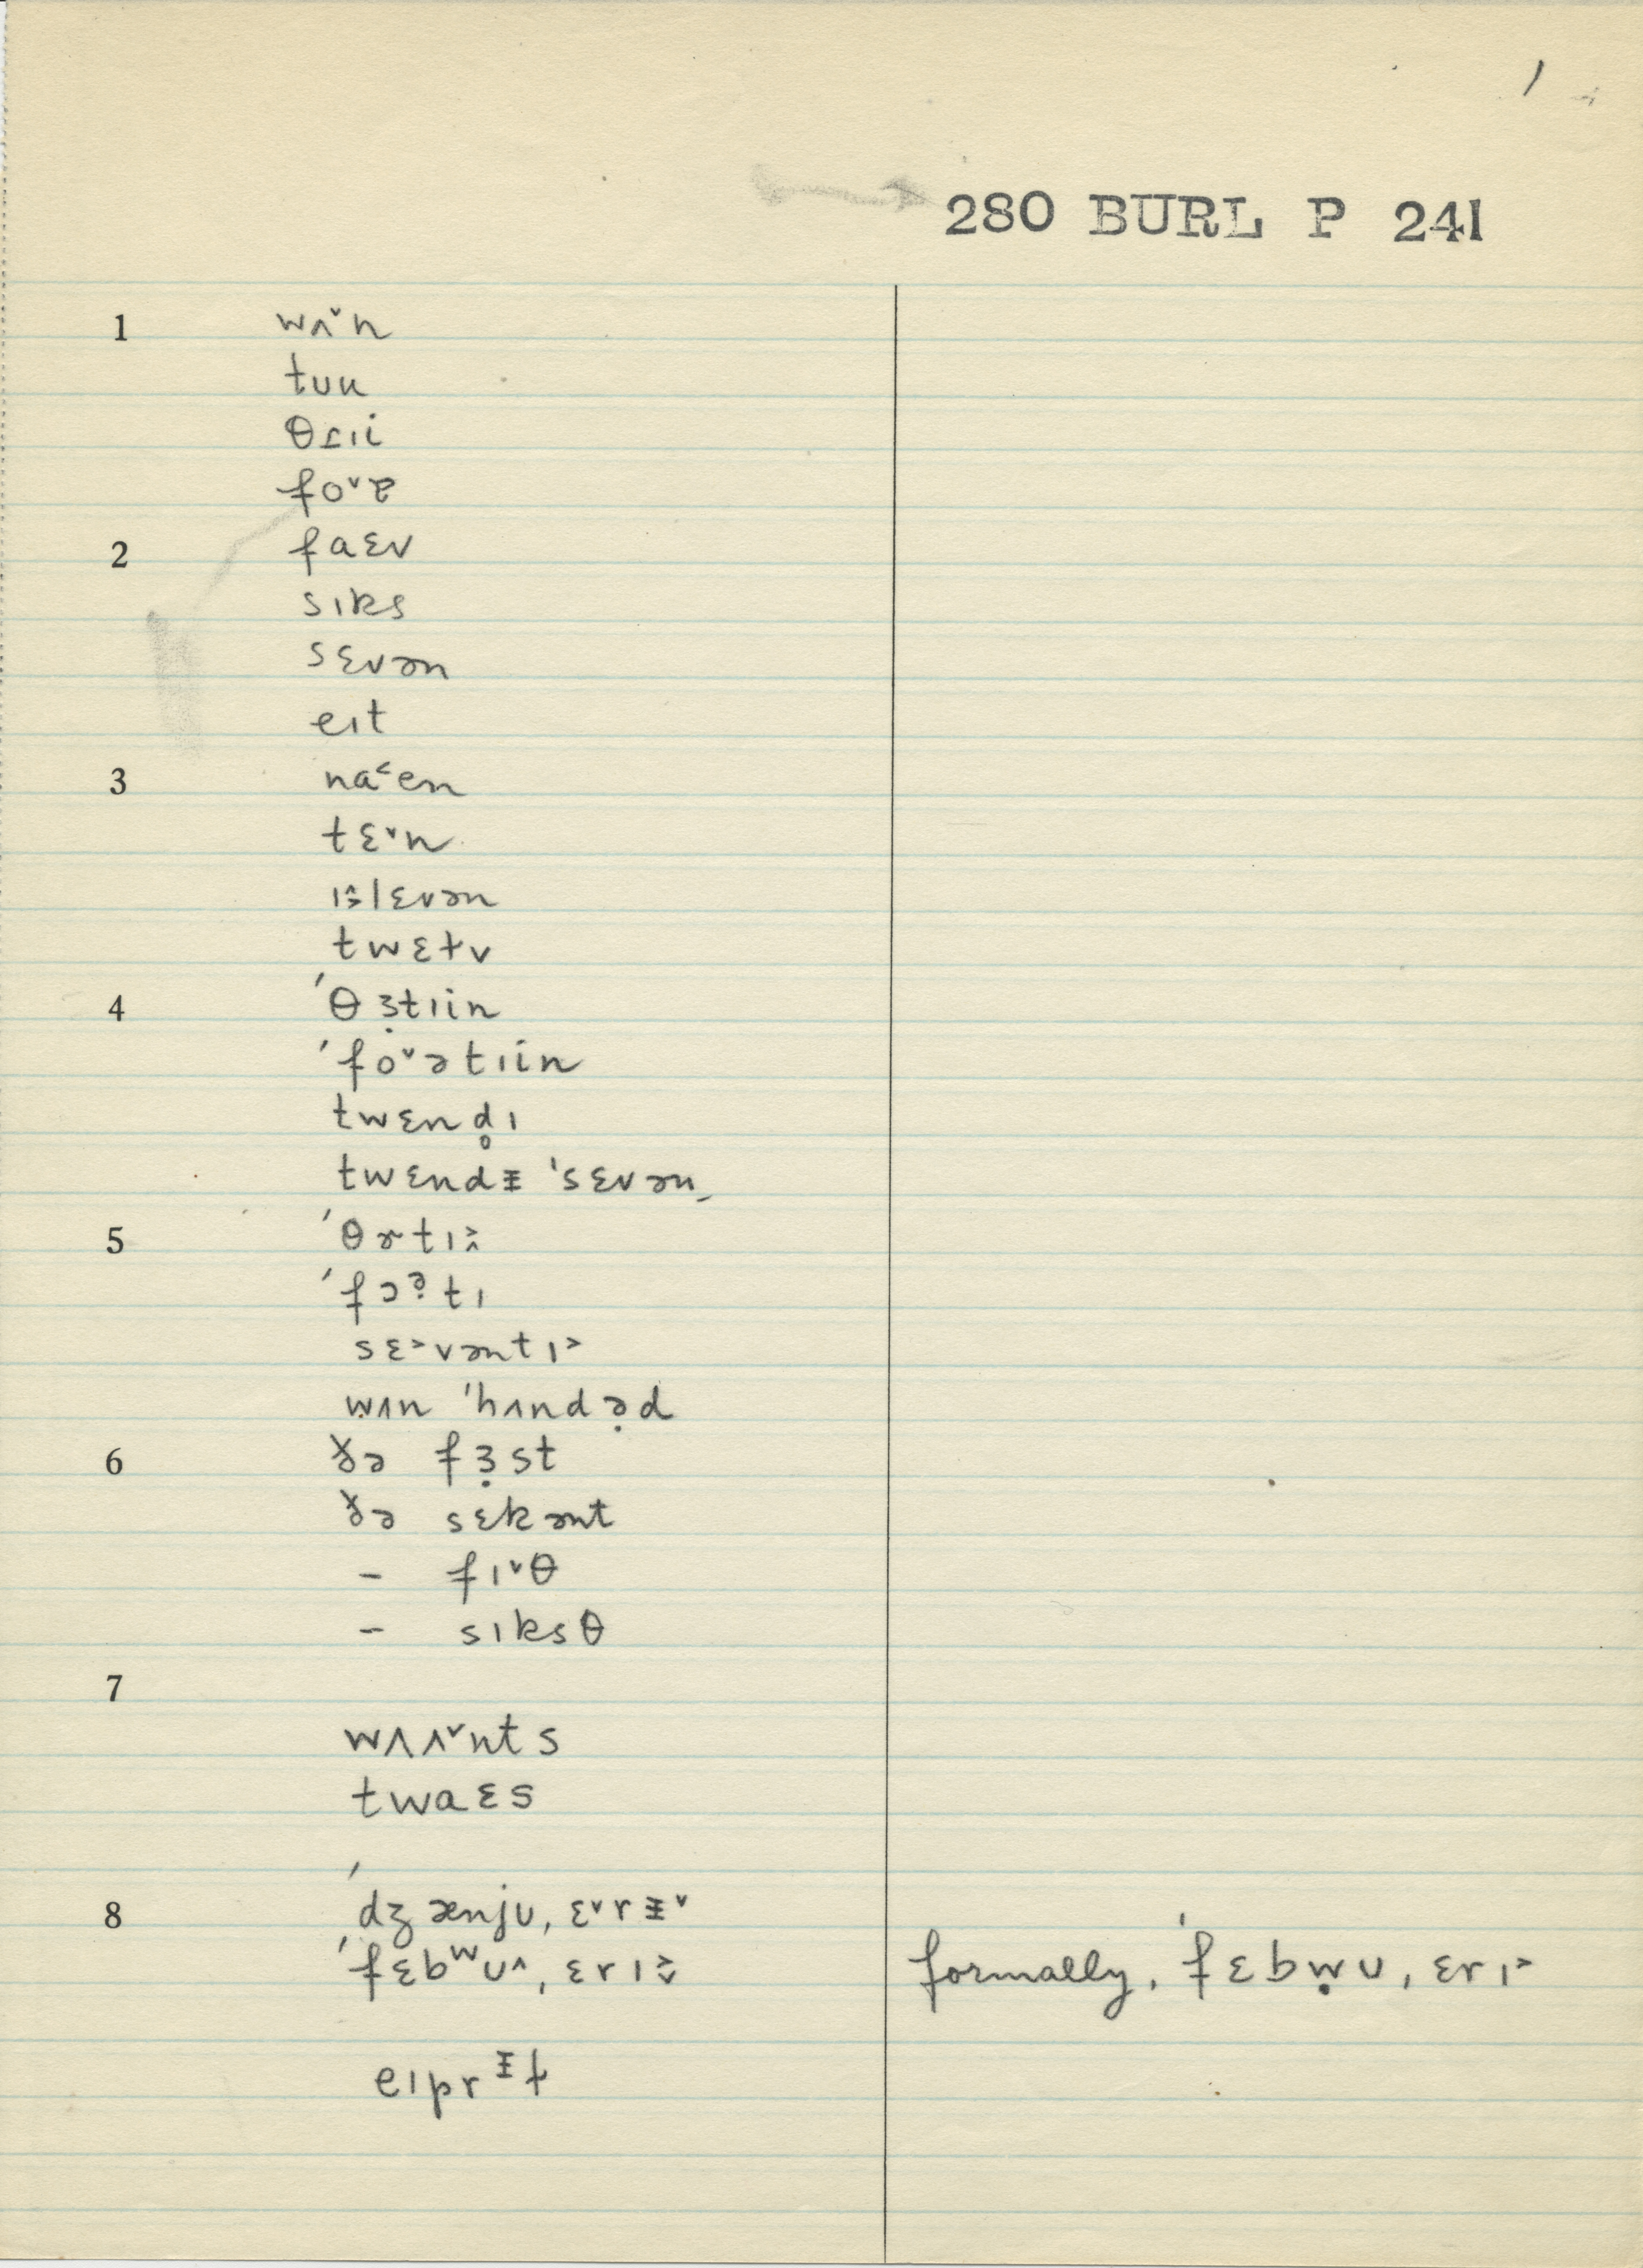 1
280 BURL P 241
1 wʌ˅n
tʊu
θɾɪi
fo˅ɐ
2 faɛv
sɪks
sɛvən
eɪt
3 na˂en
tɛ˅n
ɪ˰˃lɛvən
twɛɫv
4 ˈθɜ̣tɪin
ˈfo˅ətɪin
twɛnd̥ɪ
twɛndᵻ ˈsɛvən
5 ˈθɚtɪ˰˃
ˈfɔə̣tɪ
sɛ˃vəntɪ˃
wʌn ˈhʌndə̣d
6 ðə fɜ̣st
ðə sɛkənt
– fɪ˅θ
– sɪksθ
7
wʌʌ˅nts
twaɛs
8 ˈdʒænjʊˌɛ˅rᵻ˅
ˈfɛbʷʊ˄ˌɛrɪ˅˃ formally, ˈfɛbẉʊˌɛrɪ˃
eɪprᵻɫ